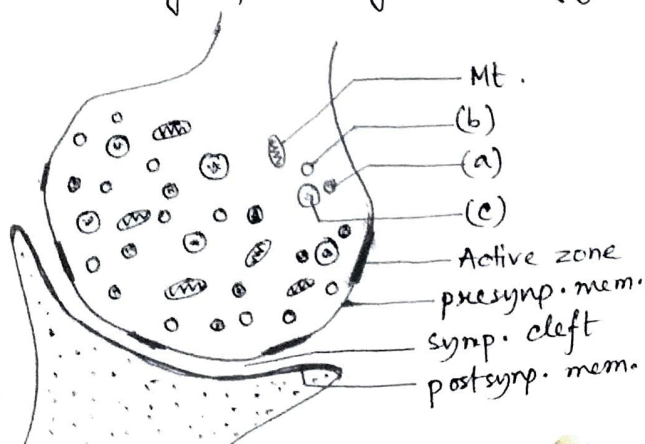 Mt.
(b)
(a)
(c)
Active zone
presynp. mem.
synp. cleft
postsynp. mem.